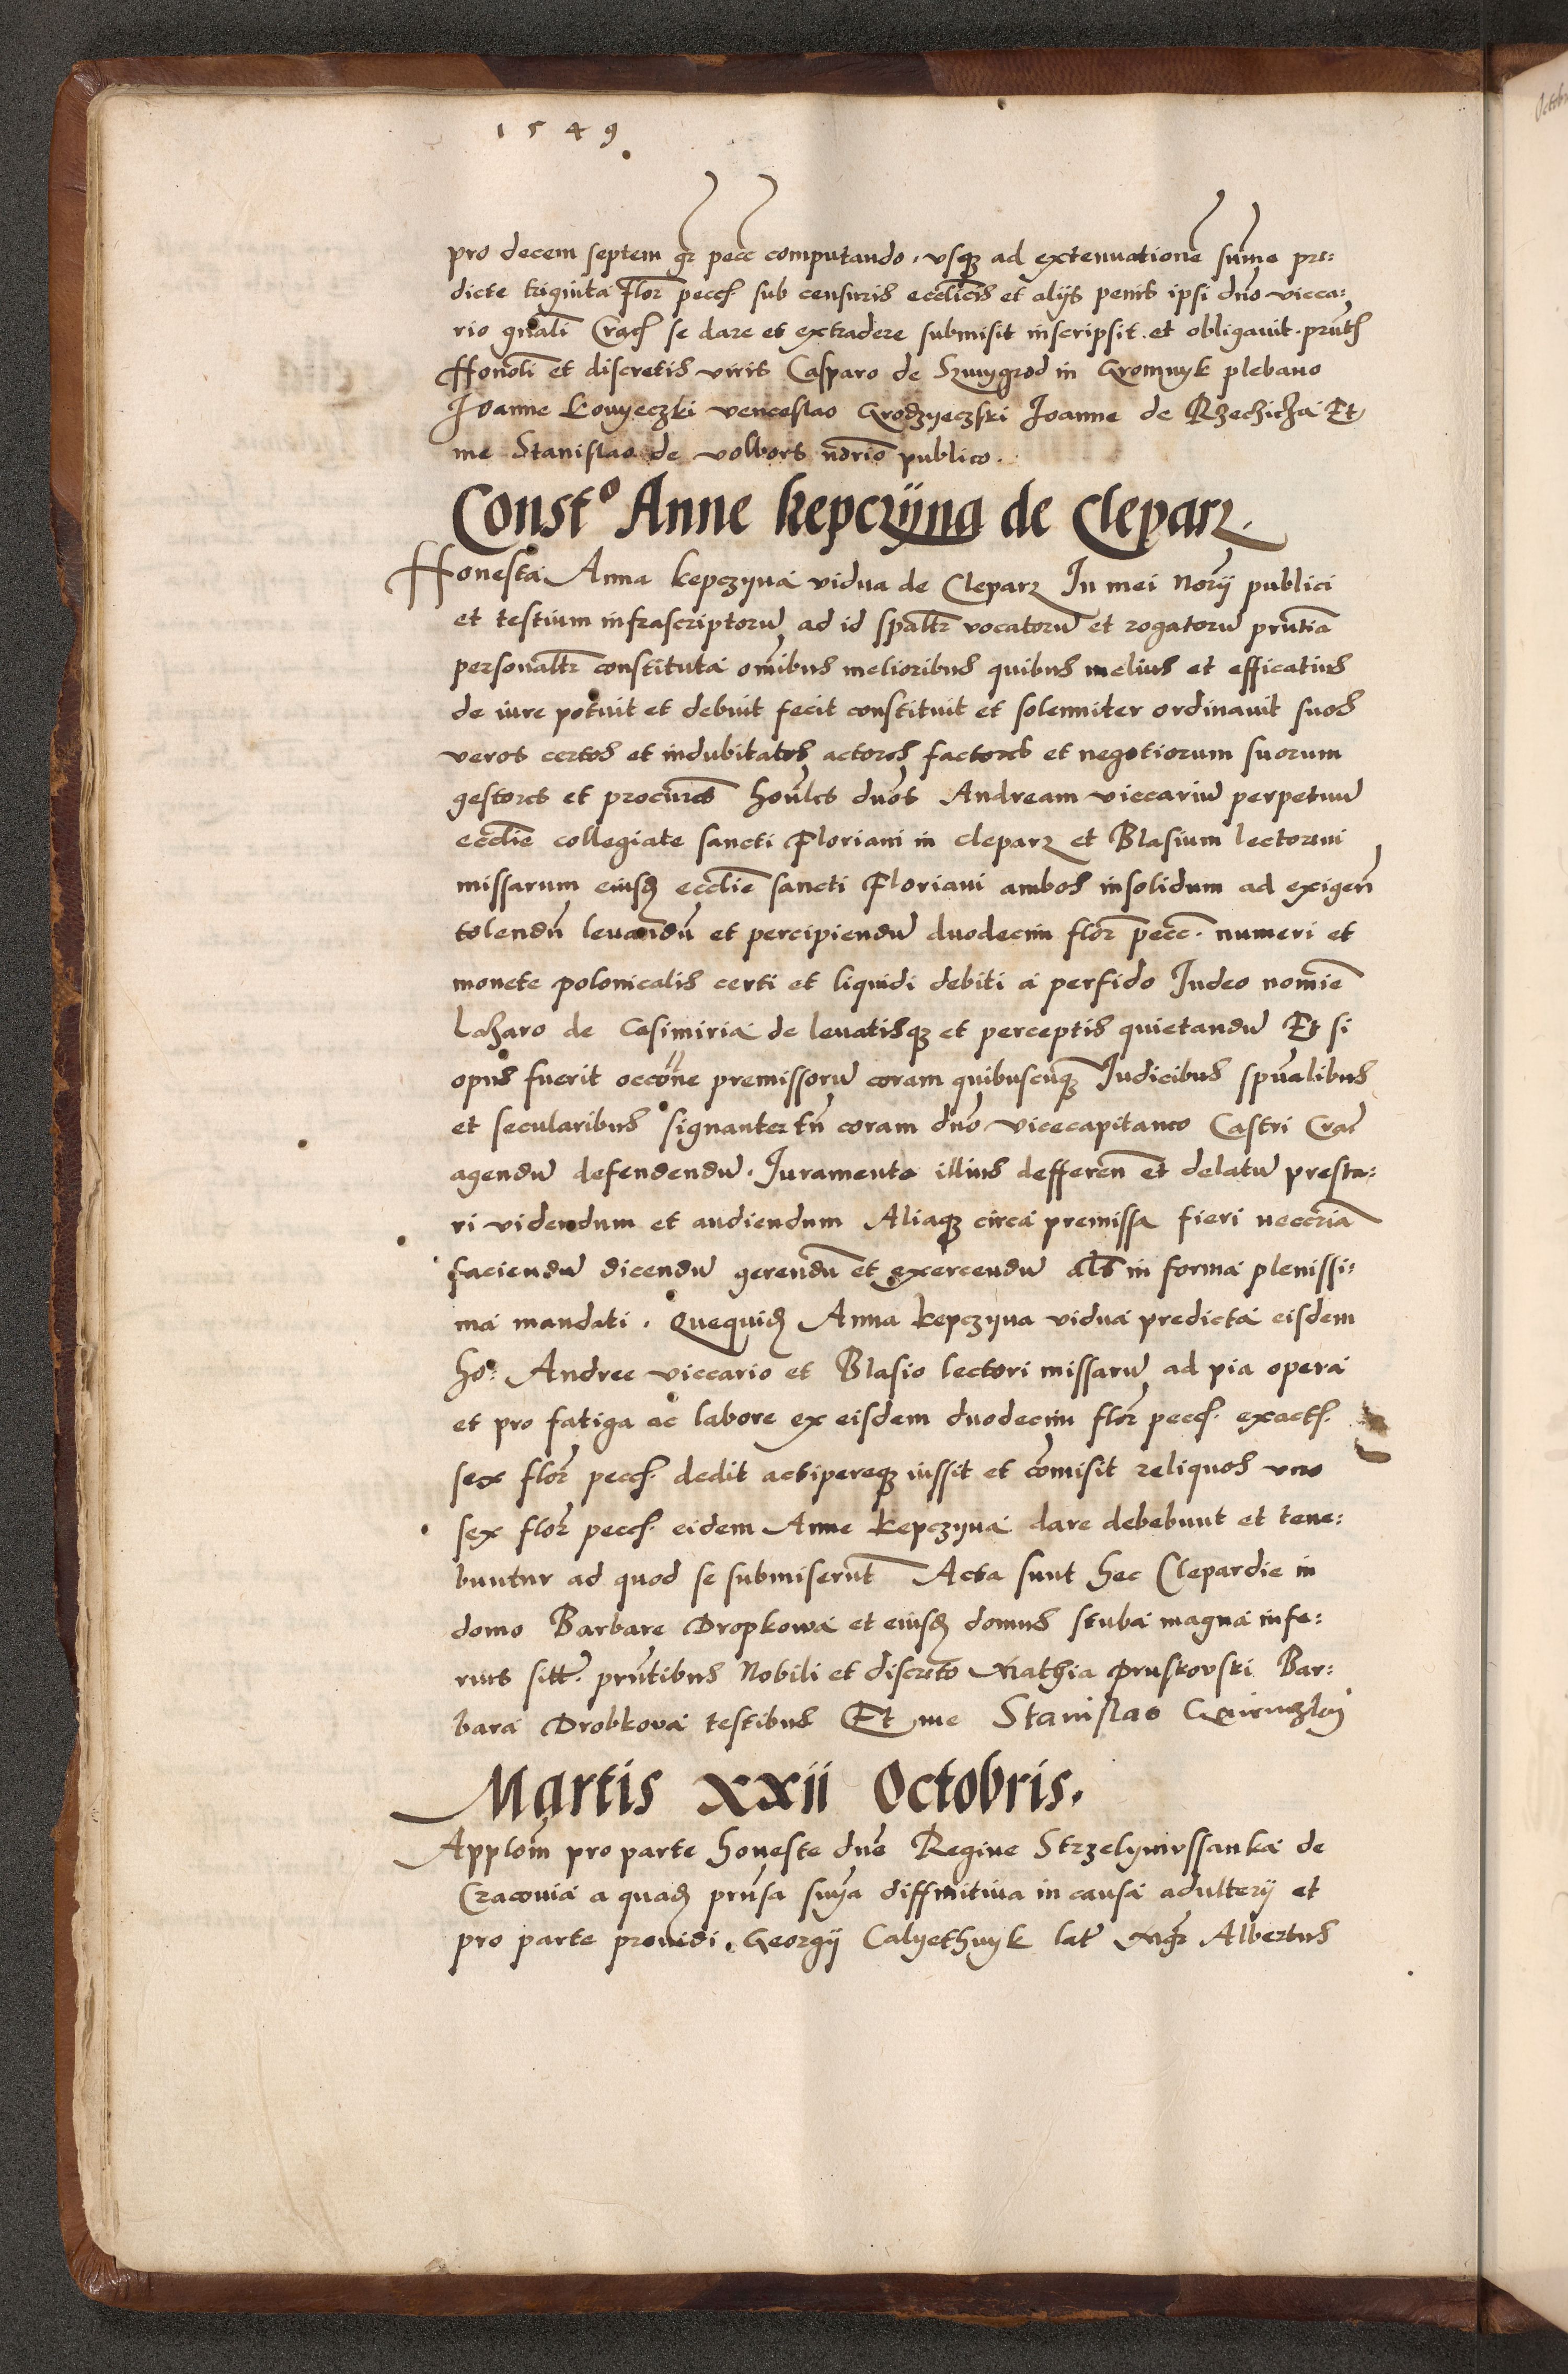 1549
pro decem septem gr pecc computando, vsqz ad extenuatione sume pre:
dicte triginta flor pecc sub censuris ecclicis et alijs penis ipsi dno vicca:
rio gnali Crac se dare et extradere submisit inscripsit et obligauit. pntb
Honoli et discretis viris Casparo de Szmygrod in Gromnyk plebano
Joanne Konyeczki venceslao Grodzyeczski Joanne de Rzechicza Et
me Stanislao de volbors norio publico.
Const° Anne kepczÿna de Cleparz.
Honesta Anna kepczyna vidua de Cleparz In mei norij publici
et testium infrascriptoru ad id spaltr vocatoru et rogatoru pntia
personaltr constituta omibus melioribus quibus melius et efficatius
de iure potuit et debuit fecit constituit et solenniter ordinauit suos
veros certos et indubitatos actores factores et negotiorum suorum
gestores et procures honles dnos Andream viccariu perpetuu
ecclie collegiate sancti Floriani in cleparz et Blasium lectorem
missarum eiusd ecclie sancti Floriani ambos insolidum ad exigen
tolendu leuandu et percipiendu duodecim flor pecc. numeri et
monete polonicalis certi et liquidi debiti a perfido Judeo nomie
Lazaro de Casimiria de leuatisqz et perceptis quietandu Et si
opus fuerit occone premissoru coram quibuscuqz Judicibus spualibus
et secularibus signanter tn coram dno vicecapitaneo Castri Crac
agendu defendendu. Juramento illius defferen et delatu presta:
ri videndum et audiendum Aliaqz circa premissa fieri neccria
faciendu dicendu gerendu et exercendu als in forma plenissi:
ma mandati. Quequid Anna kepczyna vidua predicta eisdem
ho: Andree viccario et Blasio lectori missaru ad pia opera
et pro fatiga ac labore ex eisdem duodecim flor pecc. exact.
sex flor pecc. dedit accipereqz iussit et comisit reliquos vero
sex flor pecc. eidem Anne kepczyna dare debebunt et tene:
buntur ad quod se submiserunt Acta sunt hec Clepardie in
domo Barbare Dropkowa et eiusd domus stuba magna infe:
rius sitt. pntibus Nobili et discreto Mathia Pruskovski Bar:
bara Drobkova testibus Et me Stanislao
Martis xxii Octobris.
Applom pro parte honeste dne Regine Strzelymussanka de
Cracouia a quad pnsa snya diffinitiua in causa adulterij et
pro parte prouidi. Georgij Calyethnyk lat Mgr Albertus